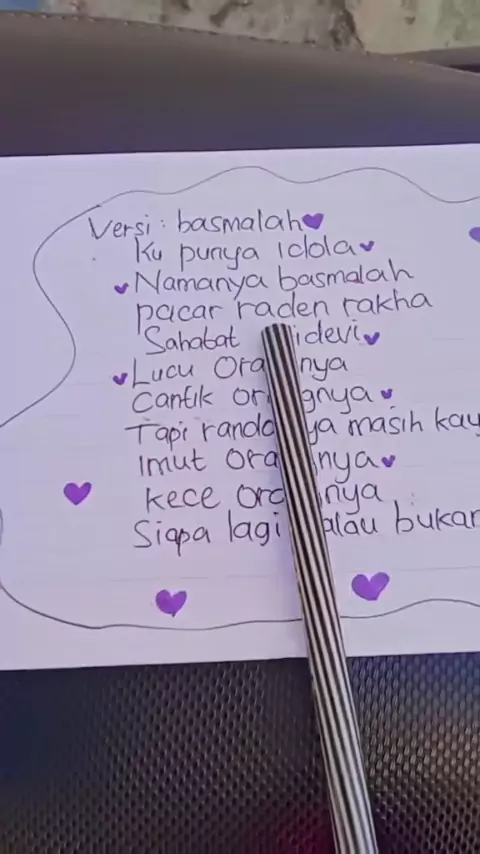 Versi : basmalah
Ku punya idola
Namanya basmalah
pacar raden rakha
Sahabat idevi
Lucu orangnya
Cantik orangnya
Tapi masih
Imut orangnya
kece orangnya
Siapa lagi kalau bukan